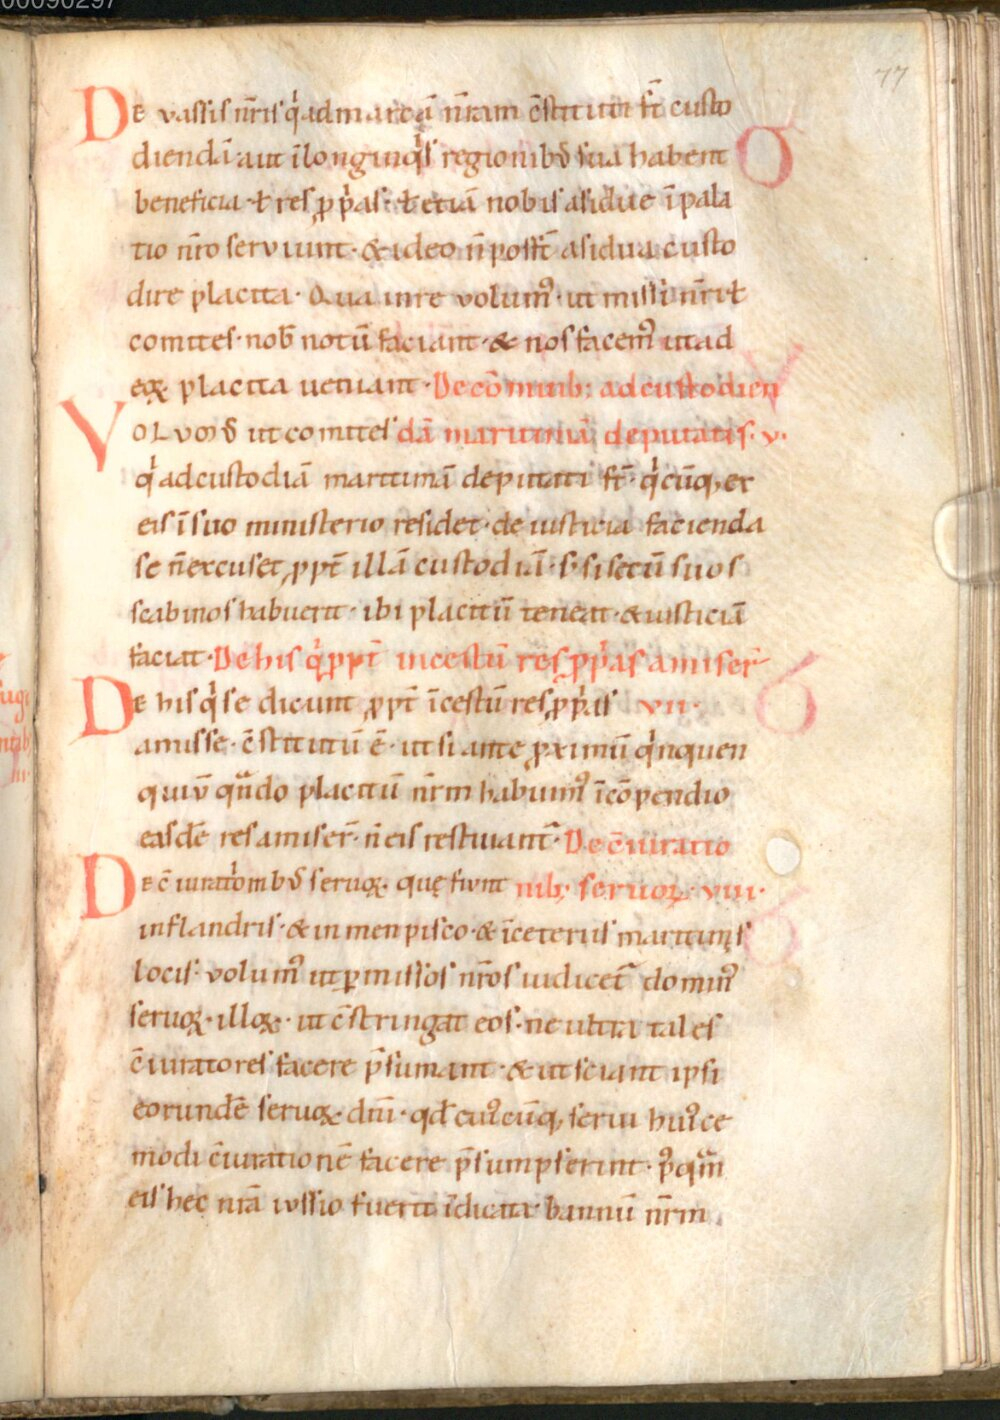 00090297
77
De vassis nr̄is q̇ ad marcā nr̄am c̄stituti st̄ custo
diendā· aut ī longinq̇s regionib⁊ sua habent
beneficia· ł res p̱ṗas· ł etiā nobis asidue ī pala
tio nr̄o serviunt· & ideo n̄ poss̄t asidua custo
dire placita· Qua in re volum⁊· ut missi nr̄i ł
comites· nob̄ notū faciant· & nos facem⁊ ut ad
eoꝝ placita veniant· De comitib; ad custodien
Volvm⁊ ut comites dā maritimā deputatis· v·
q̇ ad custodiā maritimā deputati st̄· q̇cūq; ex
eis ī suo ministerio residet· de iusticia facienda
se n̄ excuset p̱pt̄ illā custodiā· s· si secū suos
scabinos habuerit· ibi placitū teneat· & iusticiā
faciat· De his q̇ p̱pt̄ incestū res p̱ṗas amiser̄
De his q̇ se dicunt p̱pt̄ īcestū res p̱ṗas vii·
amisse· c̄stitutū ē· ut si ante p̱ximū q̇nquen
quiū qn̄do placitū nr̄m habuim⁊ ī cōpendio
easdē res amiser̄· n̄ eis restituant᷑· De c̄iuratio
De c̄iuratiōnib⁊ servoꝝ· quę fiunt nib; servoꝝ· viii·
in flandris· & in menpisco· & ī ceteris maritimis
locis· volum⁊ ut ꝑ missos nr̄os iudicet᷑ domin⁊
servoꝝ· illoꝝ· ut c̄stringat eos· ne ultra tales
c̄iuratores facere p̄sumant· & ut sciant ipsi
eorundē servoꝝ dn̄i· qd̄ cui⁊cūq; servi hui⁊ce
modi c̄iurationē facere p̄sumpserint· p⁊qua̅
eis hec nr̄a iussio fuerit īdicata· bannū nr̄m